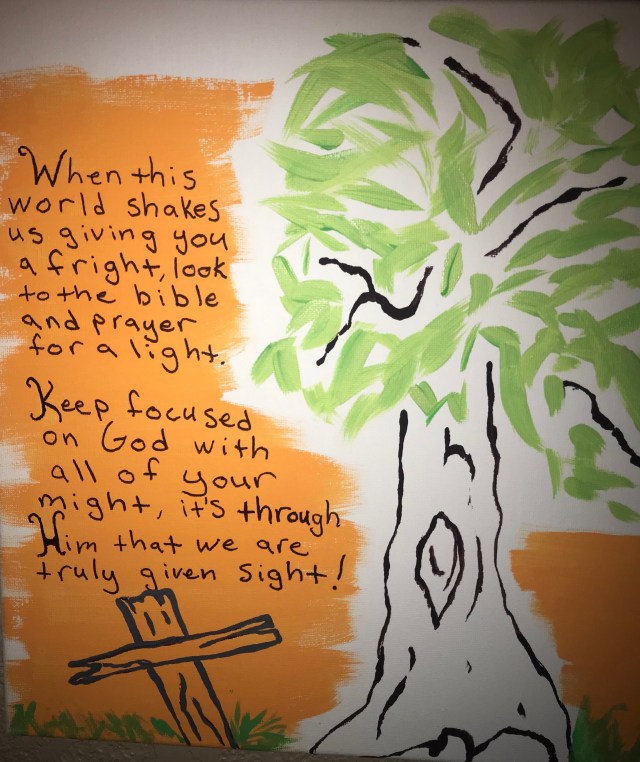 When this
world shakes
us giving you
a fright, look
to the bible
and prayer
for a light.
Keep focused
on God with
all of your
might, it's through
Him that we are
truly given sight!